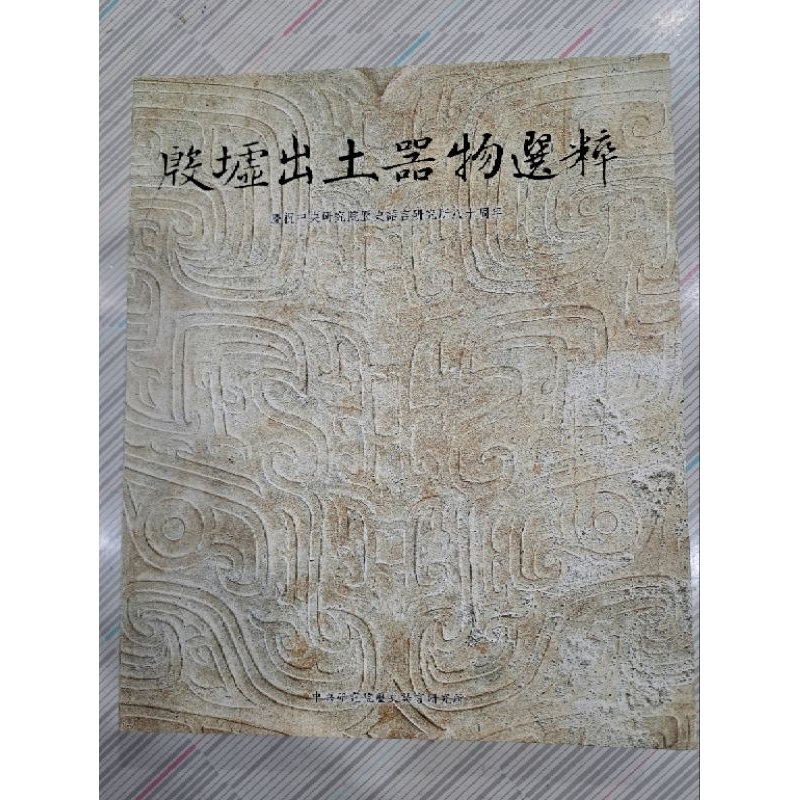 殷墟出土器物選粹
慶祝中央研究院歷史語言研究所八十周年
中央研究院歷史語言研究所